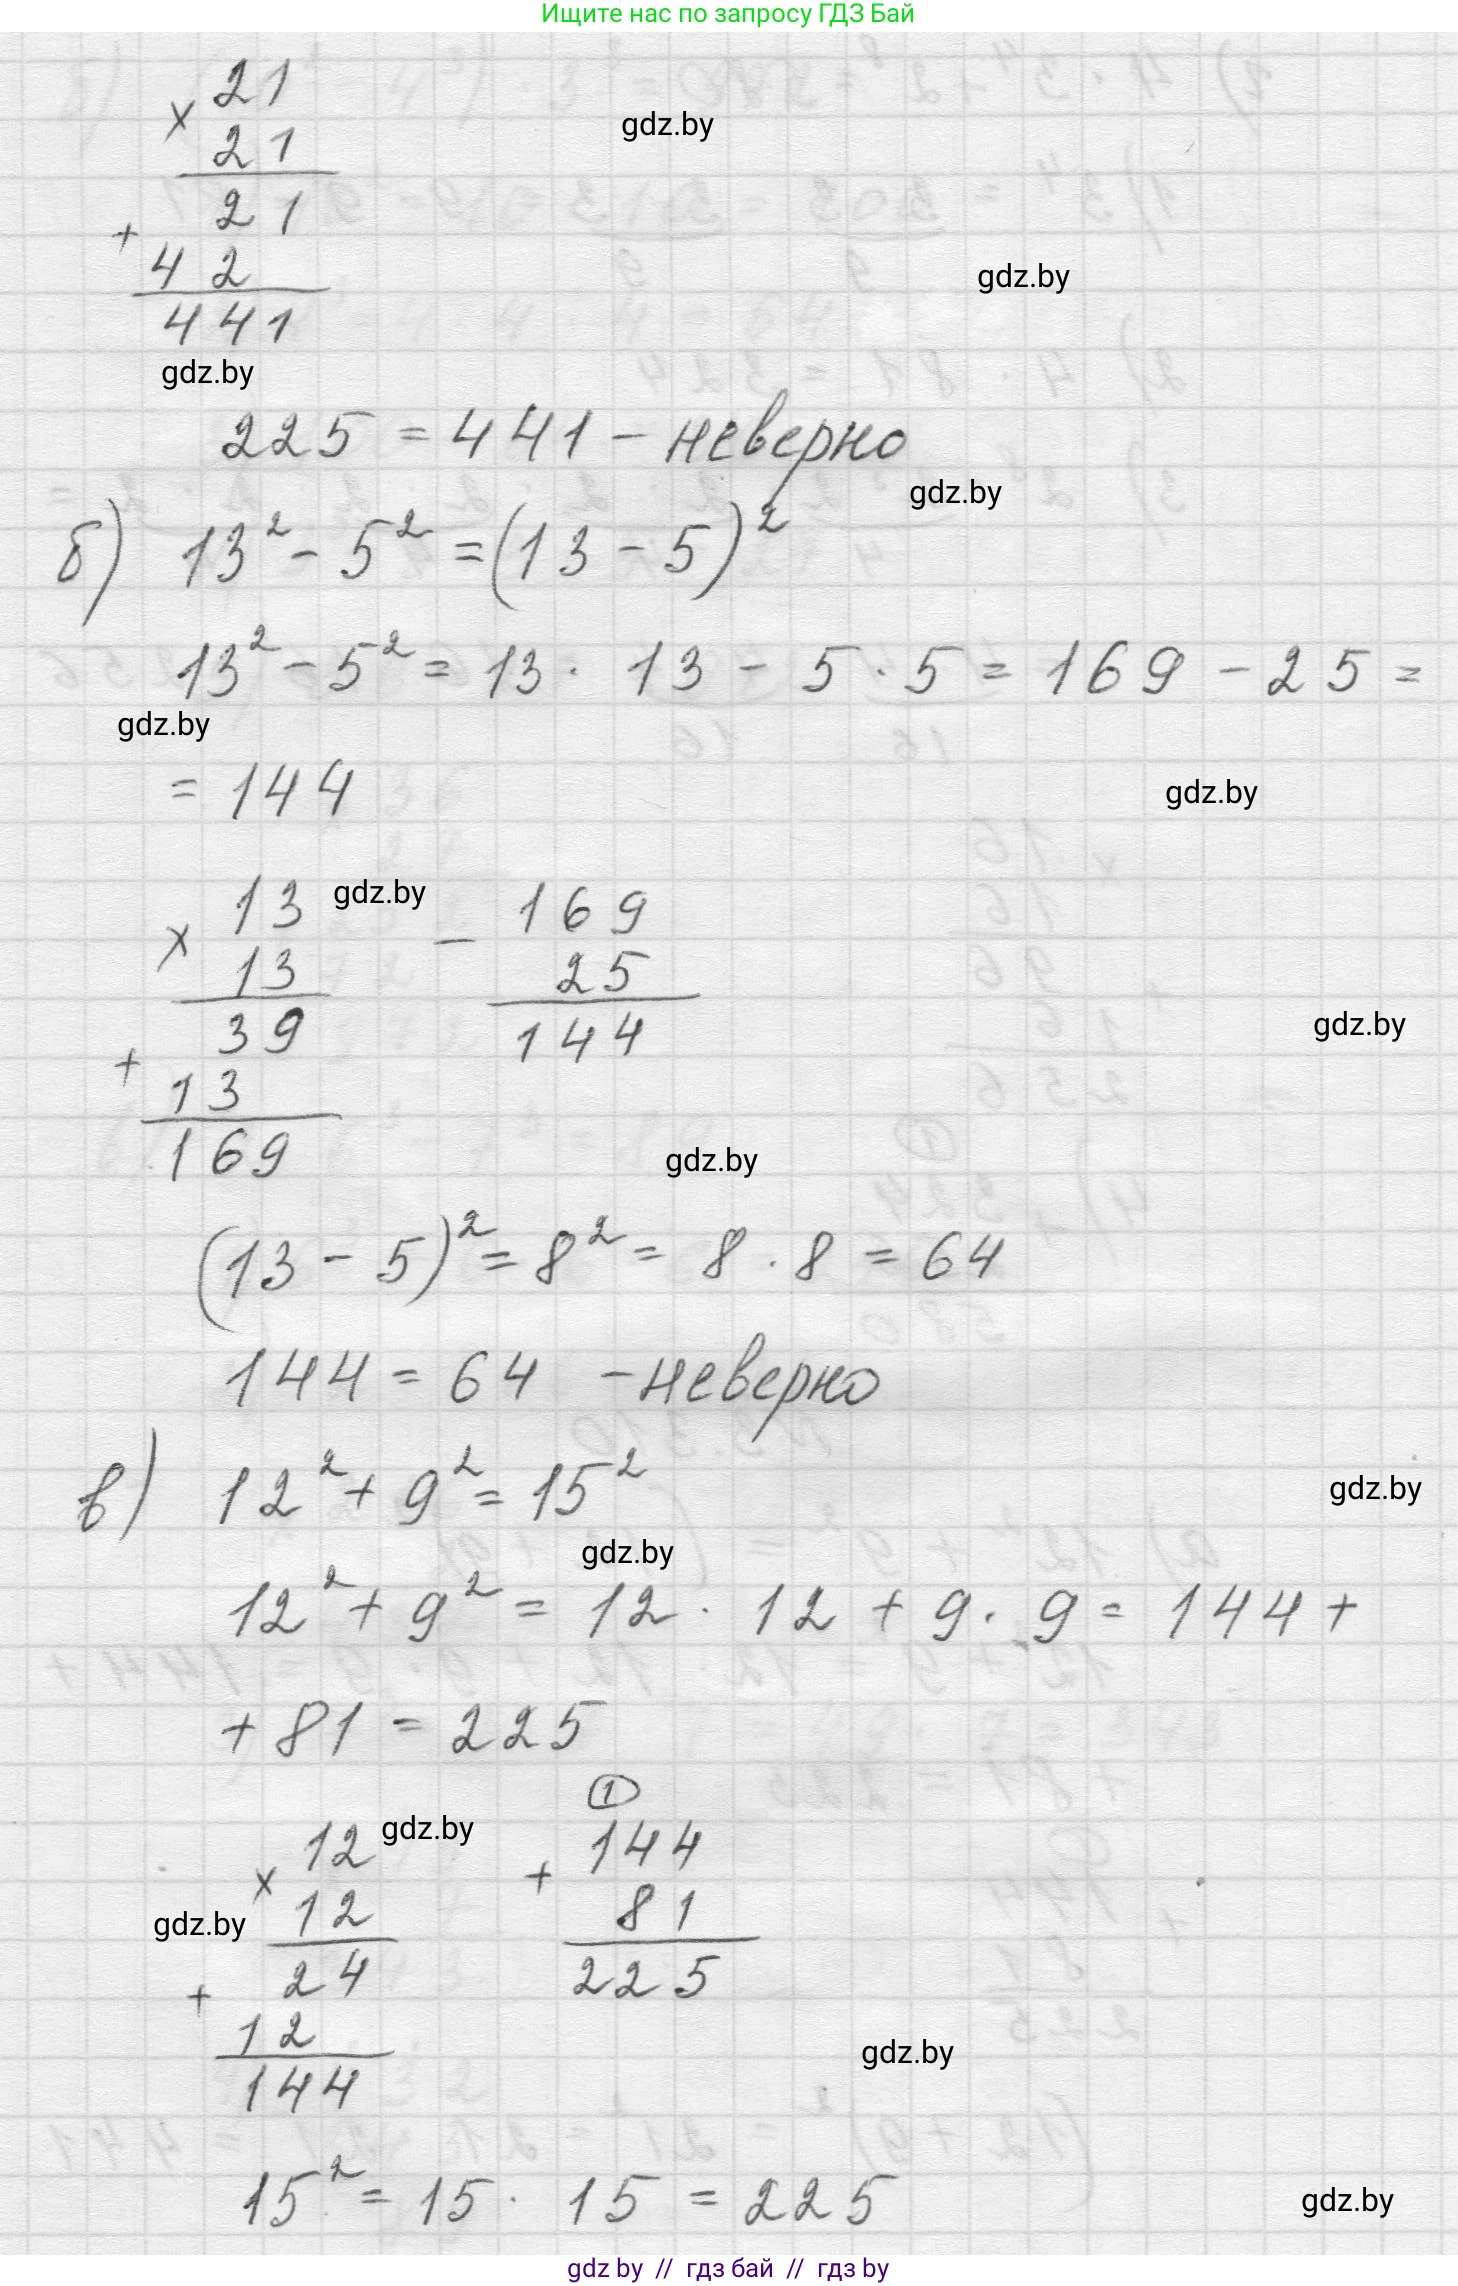 Ищите нас по запросу ГДЗ Бай
21
× 21
21
+ 42
441
gdz.by
gdz.by
gdz.by
225 = 441 – неверно
gdz.by
б) 13² – 5² = (13 – 5)²
13² – 5² = 13 · 13 – 5 · 5 = 169 – 25 =
gdz.by
= 144
gdz.by
13 gdz.by 169
× 13 – 25
39 144
+ 13
169
gdz.by
gdz.by
(13 – 5)² = 8² = 8 · 8 = 64
144 = 64 – неверно
в) 12² + 9² = 15²
gdz.by
gdz.by
12² + 9² = 12 · 12 + 9 · 9 = 144 +
+ 81 = 225
1
12 gdz.by 144
× 12 + 81
gdz.by
24 225
+ 12
144
gdz.by
15² = 15 · 15 = 225
gdz.by
gdz by // гдз бай // гдз by